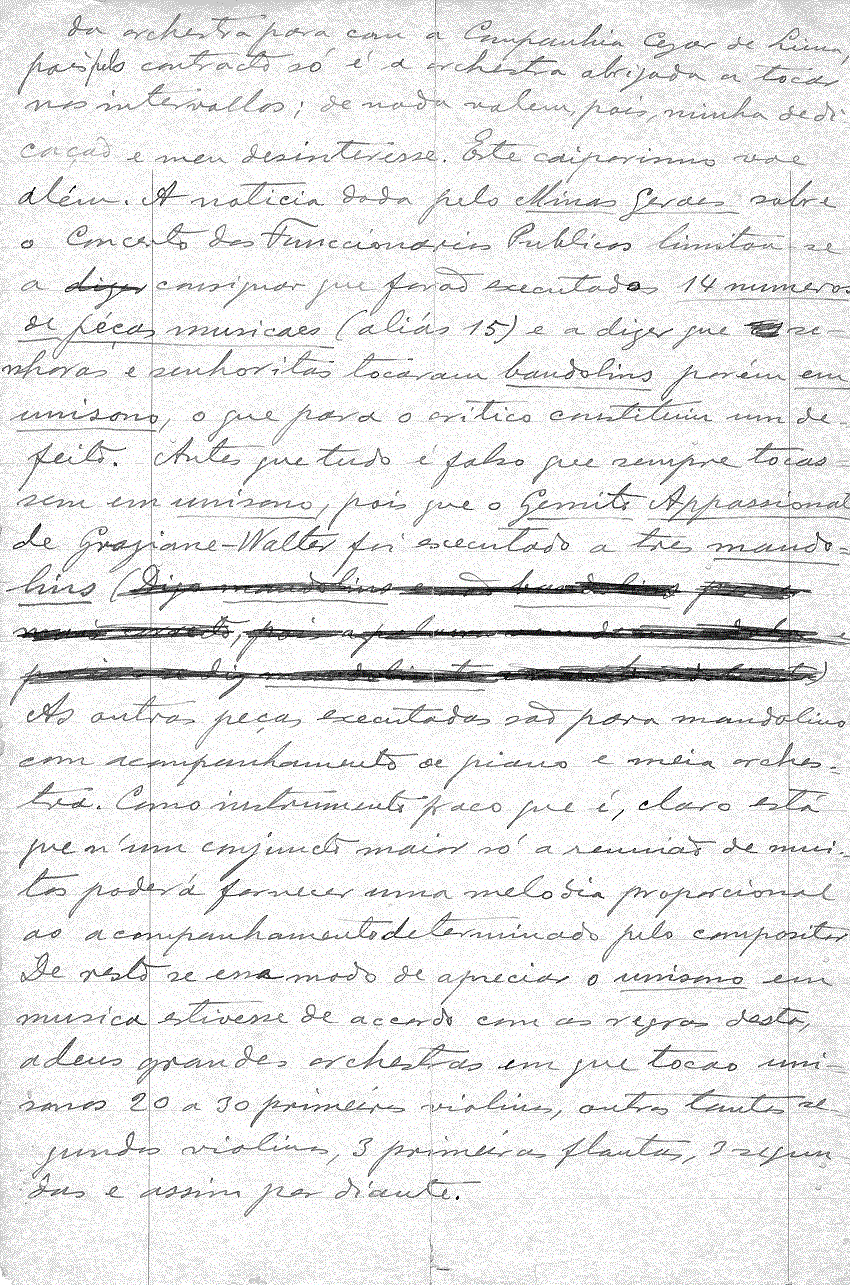 da orchestra para com a Companhia Cezar de Lima,
pois pelo contracto só é a orchestra obrigada a tocar
nos intervallos; de nada valem, pois, minha dedi
cação e meu desinteresse. Este caiporismo vae
além. A noticia dada pelo Minas Geraes sobre
o Concerto dos Funccionarios Publicos limitou-se
a dizer consignar que forão executados 14 numeros
de péças musicaes (aliás 15) e a dizer que se-
nhoras e senhoritas tocaram bandolins porém em
unisono, o que para o critico constituiu um de-
feito. Antes que tudo é falso que sempre tocas-
sem em unisono, pois que o Gemito Appassionat
de Graziane-Walter foi executado a tres mando-
lins (Digo mandolins e não bandolins
mais correcto, pois a palavra vem de
As outras peças executadas são para mandolino
com acompanhamento de piano e meia orches-
tra. Como instrumento fraco que é, claro está
que n'um conjuncto maior só a reunião de mui-
tos poderá fornecer uma melodia proporcional
ao acompanhamento determinado pelo compositor
De resto se essa modo de apreciar o unisono em
musica estivesse de accordo com as regras desta,
adeus grandes orchestras em que tocão uni-
sonos 20 a 30 primeiros violinos, outros tantos se-
gundos violinos, 3 primeiras flautas, 3 segun
das e assim por diante.